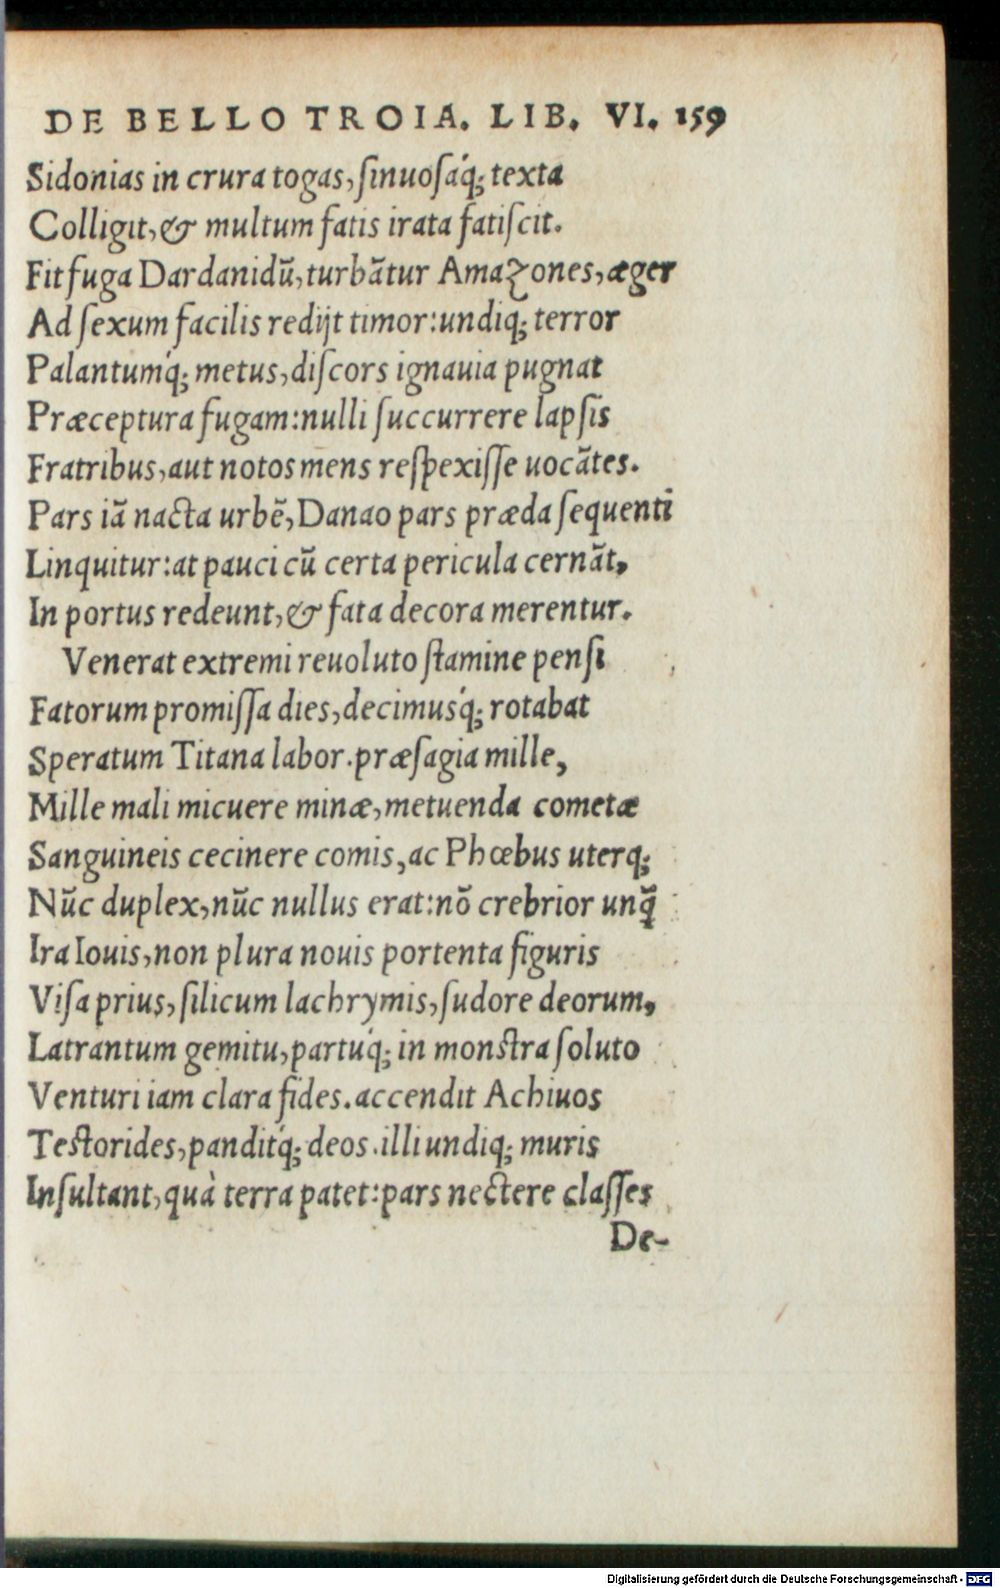 DE BELLO TROIA. LIB. VI. 159
Sidonias in crura togas, ſinuoſáq; texta
Colligit, & multum fatis irata fatiſcit.
Fit fuga Dardanidū, turbātur Amazones, æger
Ad ſexum facilis redijt timor: undiq; terror
Palantumq́; metus, diſcors ignauia pugnat
Præceptura fugam: nulli ſuccurrere lapſis
Fratribus, aut notos mens reſpexiſſe uocātes.
Pars iā nacta urbē, Danao pars præda ſequenti
Linquitur: at pauci cū certa pericula cernāt,
In portus redeunt, & fata decora merentur.
Venerat extremi reuoluto ſtamine penſi
Fatorum promiſſa dies, decimusq́; rotabat
Speratum Titana labor. præſagia mille,
Mille mali micuere minæ, metuenda cometæ
Sanguineis cecinere comis, ac Phœbus uterq;
Nūc duplex, nūc nullus erat: nō crebrior unq̄
Ira Iouis, non plura nouis portenta figuris
Viſa prius, ſilicum lachrymis, ſudore deorum,
Latrantum gemitu, partuq́; in monſtra ſoluto
Venturi iam clara fides. accendit Achiuos
Teſtorides, panditq́; deos. illi undiq; muris
Inſultant, quà terra patet: pars nectere claſſes
De-
Digitalisierung gefördert durch die Deutsche Forschungsgemeinschaft - DFG